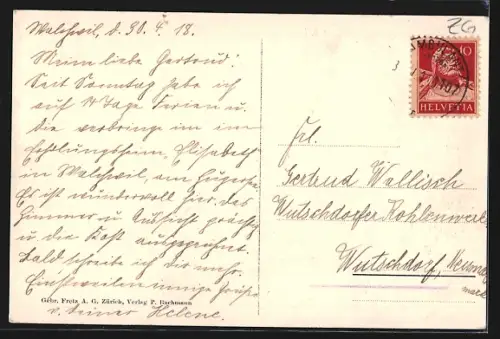 Walchwil, d. 30. 4. 18.
Meine liebe Gertrud!
Seit Sonntag habe ich
auf 14 Tage Ferien u.
die verbringe im
Erholungsheim „Elisabeth“
in Walchwil, am Zugersee.
Es ist wundervoll hier, das
Zimmer u. Aussicht prächtig
u. die Kost ausgezeichnet.
Bald schreibe ich dir mehr.
Einstweilen innige Grüsse
v. deiner Helene.
Gebr. Fretz A. G. Zürich, Verlag P. Bachmann
ZG
10
HELVETIA
Frl.
Gertrud Wallisch
Wutschdorfer Kohlenwerke
Wutschdorf, Neumark